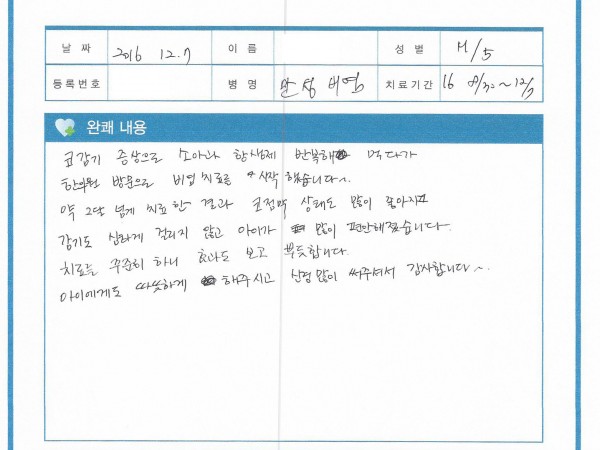 날 짜 2016 12.7 이 름 성 별 M/5
등록번호 병 명 만성 비염 치료기간 16 8/30~12/7
완쾌 내용
코감기 증상으로 소아과 항생제 반복해 먹다가
한의원 방문으로 비염치료를 시작 했습니다~.
약 2달 넘게 치료한 결과 코점막 상태도 많이 좋아지고
감기도 심하게 걸리지 않고 아이가 많이 편안해졌습니다.
치료를 꾸준히 하니 효과도 보고 뿌듯합니다.
아이에게도 따뜻하게 해주시고 신경 많이 써주셔서 감사합니다~.